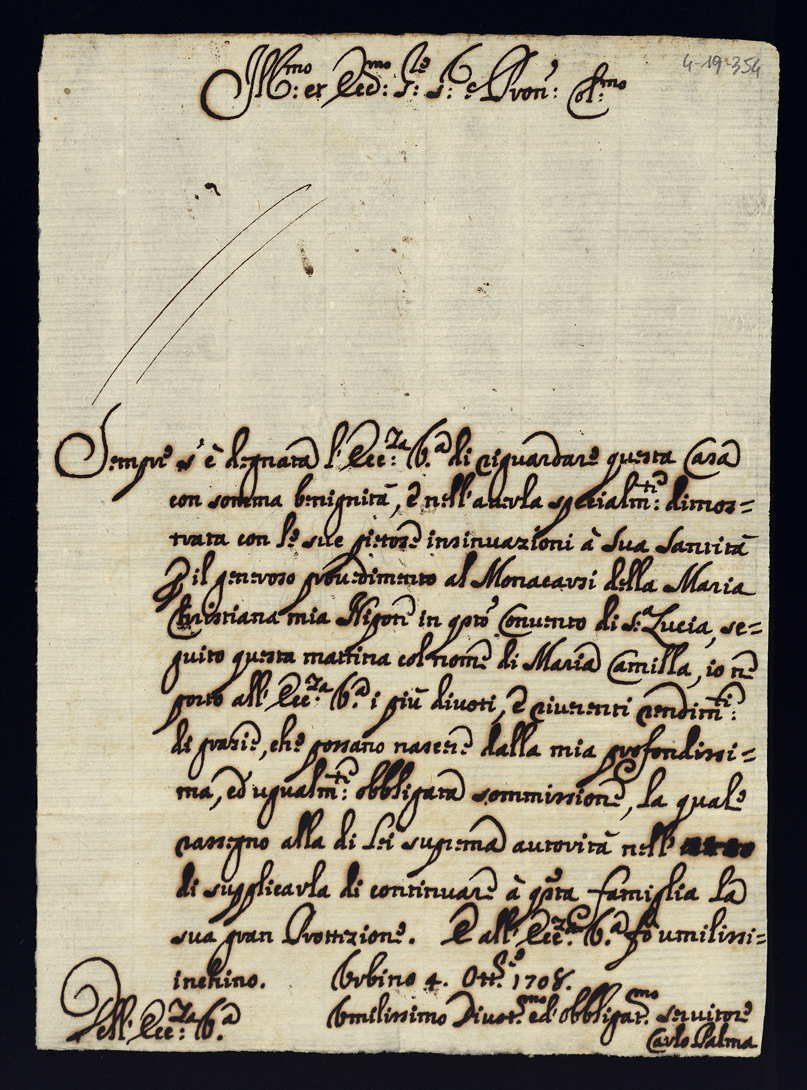 4-19-354
Ill:mo et Ecc:mo S:re S: e Pron: Col:mo
Sempre s'è degnata l'Ecc:za V.a di riguardare questa Casa
con somma benignità, è nell'averla spezialm:te dimos=
trata con le sue pietose insinuazioni à Sua Santità
p il generoso provedimento al Monacarsi della Maria
Christiana mia Nipote in qsto Convento di S.a Lucia, se=
guito questa mattina col nome di Maria Camilla, io ne
porto all'Ecc:za V.a i più divoti, è riverenti rendim:ti
di grazie, che possano nascere dalla mia profondissi=
ma, ed ugualm:te obbligata sommissione, la quale
rassegno alla di Lei suprema autorità nell'
di supplicarla di continuare à qsta famiglia la
sua gran Protezione. E all'Ecc:za V.a fò umilissi=
inchino. Urbino 4. Ott:re 1708.
Dell'Ecc:za V.a Umilissimo Divot:mo ed obbligat:mo servitore
Carlo Palma